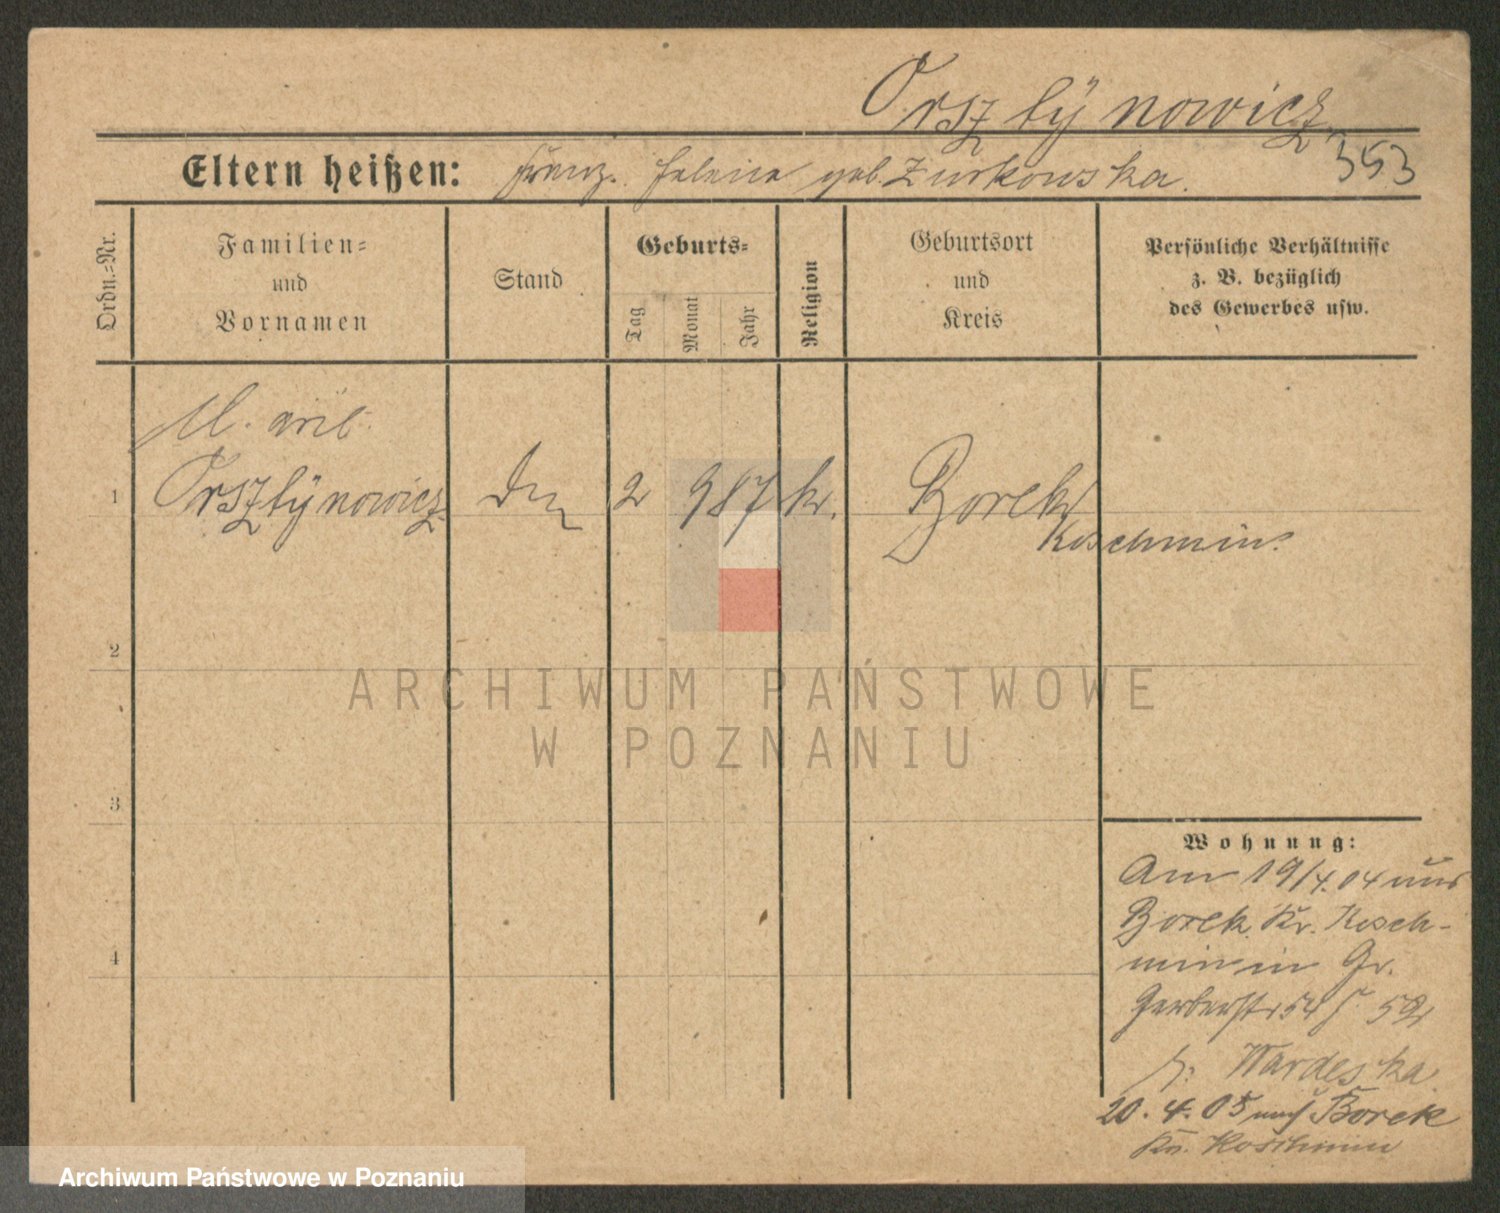 Orsztÿnowicz
353
Eltern heißen: Franz. Felicia geb. Zurkowska.
Ordn.=Nr.
Familien=
und
Vornamen
Stand
Geburts=
Tag
Monat
Jahr
Religion
Geburtsort
und
Kreis
Persönliche Verhältnisse
z. B. bezüglich
des Gewerbes usw.
1
Orsztÿnowicz
2 9 87
Borek
Koschmin.
2
3
4
Wohnung:
Am 19/4.04 aus
Borek Kr. Kosch-
min in Gr.
Gerberstr 54
Wardeska
20. 4. 05 nach Borek
Kr. Koschmin
ARCHIWUM PAŃSTWOWE
W POZNANIU
Archiwum Państwowe w Poznaniu